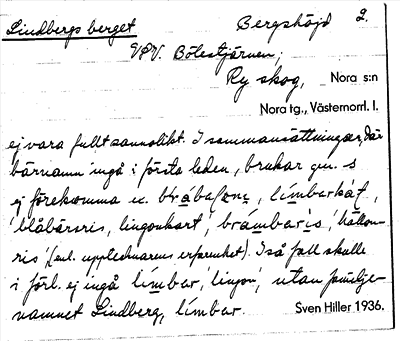 Lindbergs berget Bergshöjd 2.
VSV. Bölestjärnen,
Ry skog, Nora s:n
Nora tg., Västernorrl. l.
ej vara fullt sannolikt. I sammansättningar, där
bärnamn ingå i första leden, brukar gen. -s
ej förekomma
'blåbärsris, lingonkart', 'hallon-
ris' (enl. upptecknarens erfarenhet). I så fall skulle
i förl. ej ingå límbar, 'lingon', utan familje-
namnet Lindberg, límbar. Sven Hiller 1936.